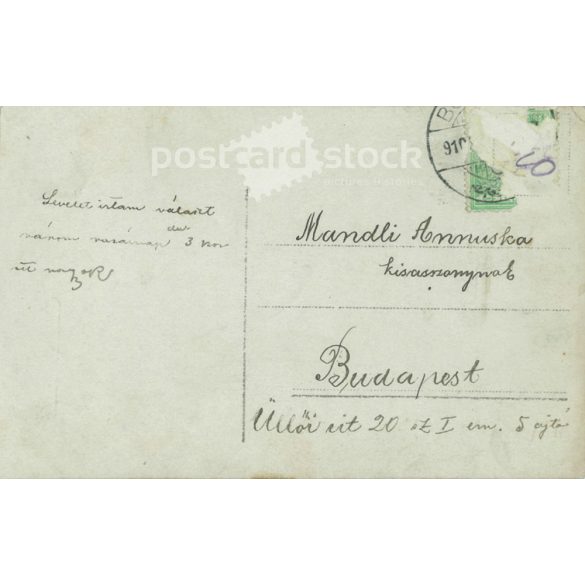 postcard stock
pictures & stories
Levelet irtam választ
várom vasárnap du 3 kor
Mandli Annuska
kisasszonynak
Budapest
Üllői út 20 sz I em. 5 ajtó
B
910
20